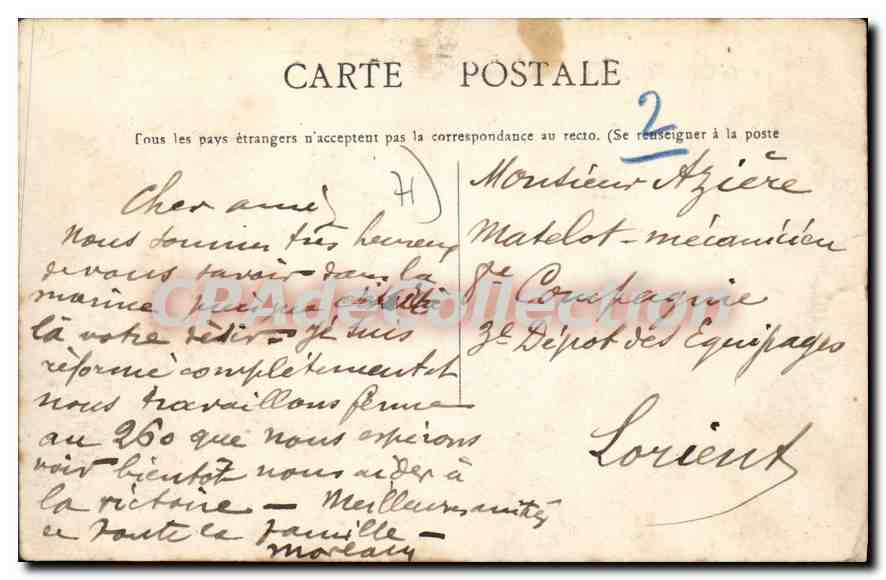 CARTE POSTALE
Tous les pays étrangers n'acceptent pas la correspondance au recto. (Se renseigner à la poste
2
71
Cher ami
nous sommes très heureux
de vous savoir dans la
marine puisque c'était
là votre désir - je suis
réformé complètement et
nous travaillons ferme
au 260 que nous espérons
voir bientôt nous aider à
la victoire - Meilleures amitiés
de toute la famille -
Moreau
Monsieur Azière
Matelot-mécanicien
7e Compagnie
3e Dépot des Equipages
Lorient
CPAdeCollection